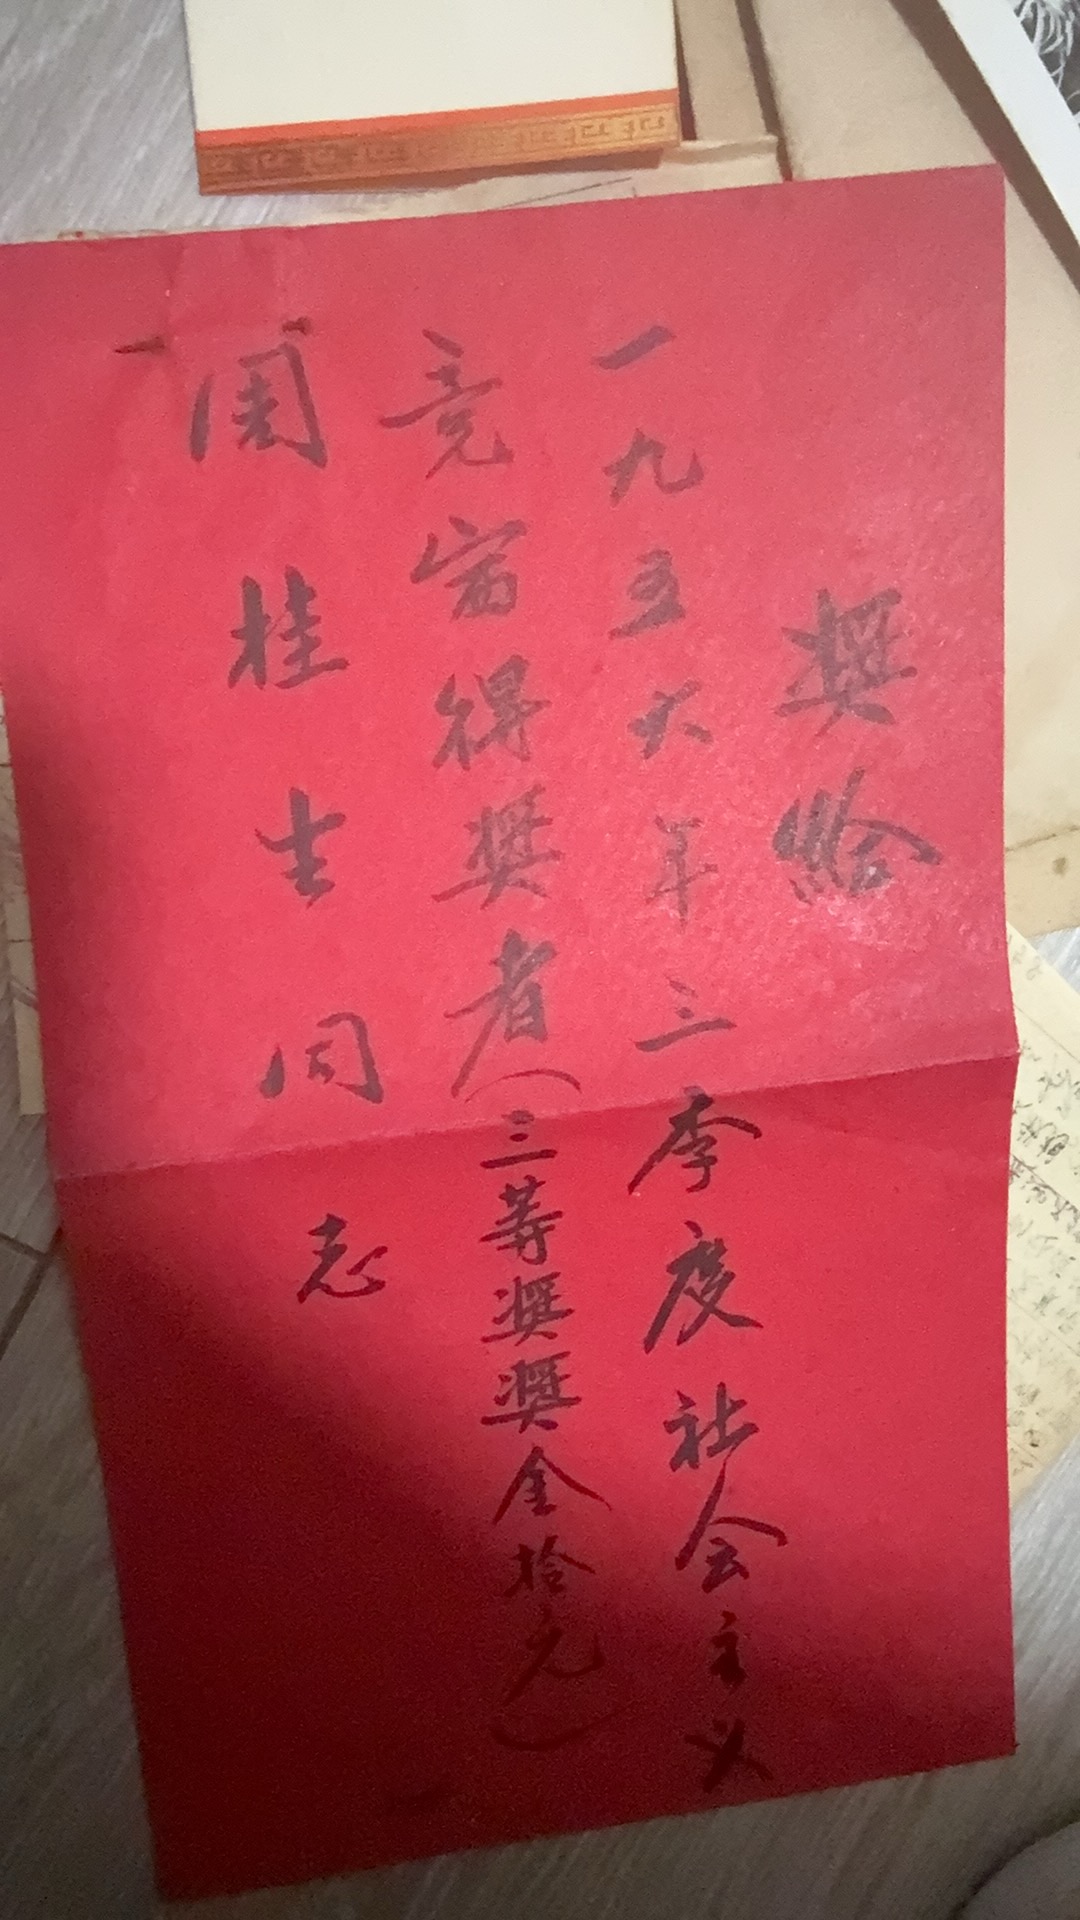 奬给
一九五六年三季度社会主义
竞赛得奬者(三等奬奬金拾元)
周桂生同志